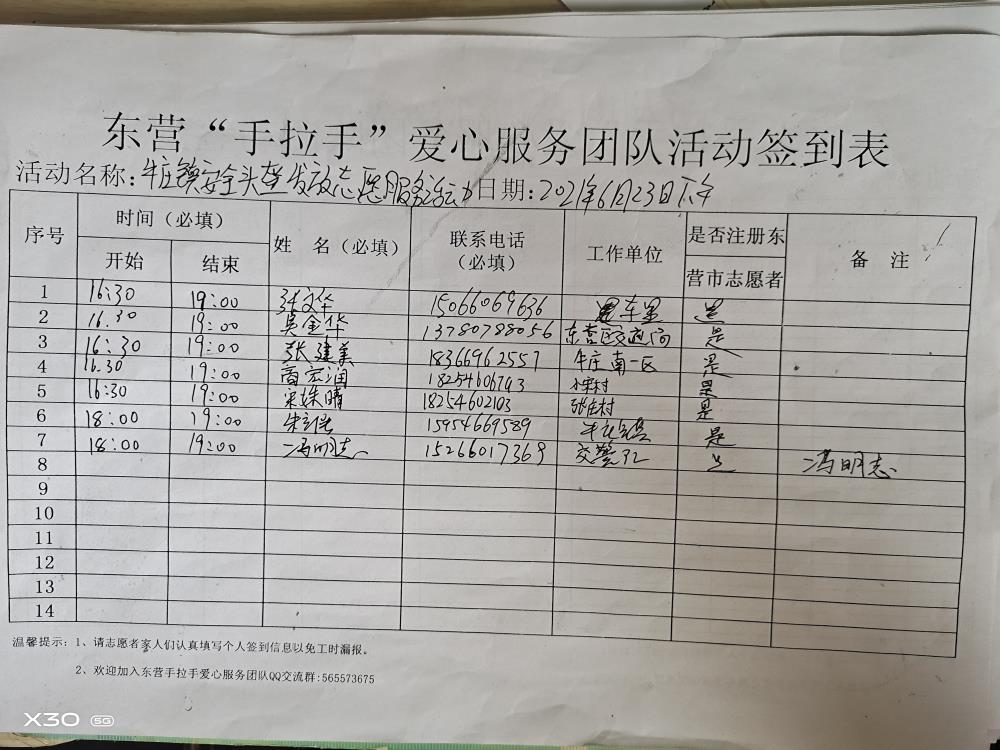 东营“手拉手”爱心服务团队活动签到表
活动名称：牛庄镇安全头盔发放志愿服务活动 日期：2021年6月23日下午
序号 时间（必填） 姓 名（必填） 联系电话（必填） 工作单位 是否注册东营市志愿者 备 注
开始 结束
1 16:30 19:00 张文华 15066069636 是
2 16.30 19:00 吴金华 13780788056 东营区交通局 是
3 16:30 19:00 张建美 18366962557 牛庄南一区 是
4 16.30 19:00 高宏润 18254606793 小宋村 是
5 16:30 19:00 宋姝晴 18254602103 张庄村 是
6 18:00 19:00 15954669589 牛庄镇 是
7 18:00 19:00 冯明志 15266017369 交警 是 冯明志
8
9
10
11
12
13
14
温馨提示：1、请志愿者家人们认真填写个人签到信息以免工时漏报。
2、欢迎加入东营手拉手爱心服务团队QQ交流群:565573675
X30 5G